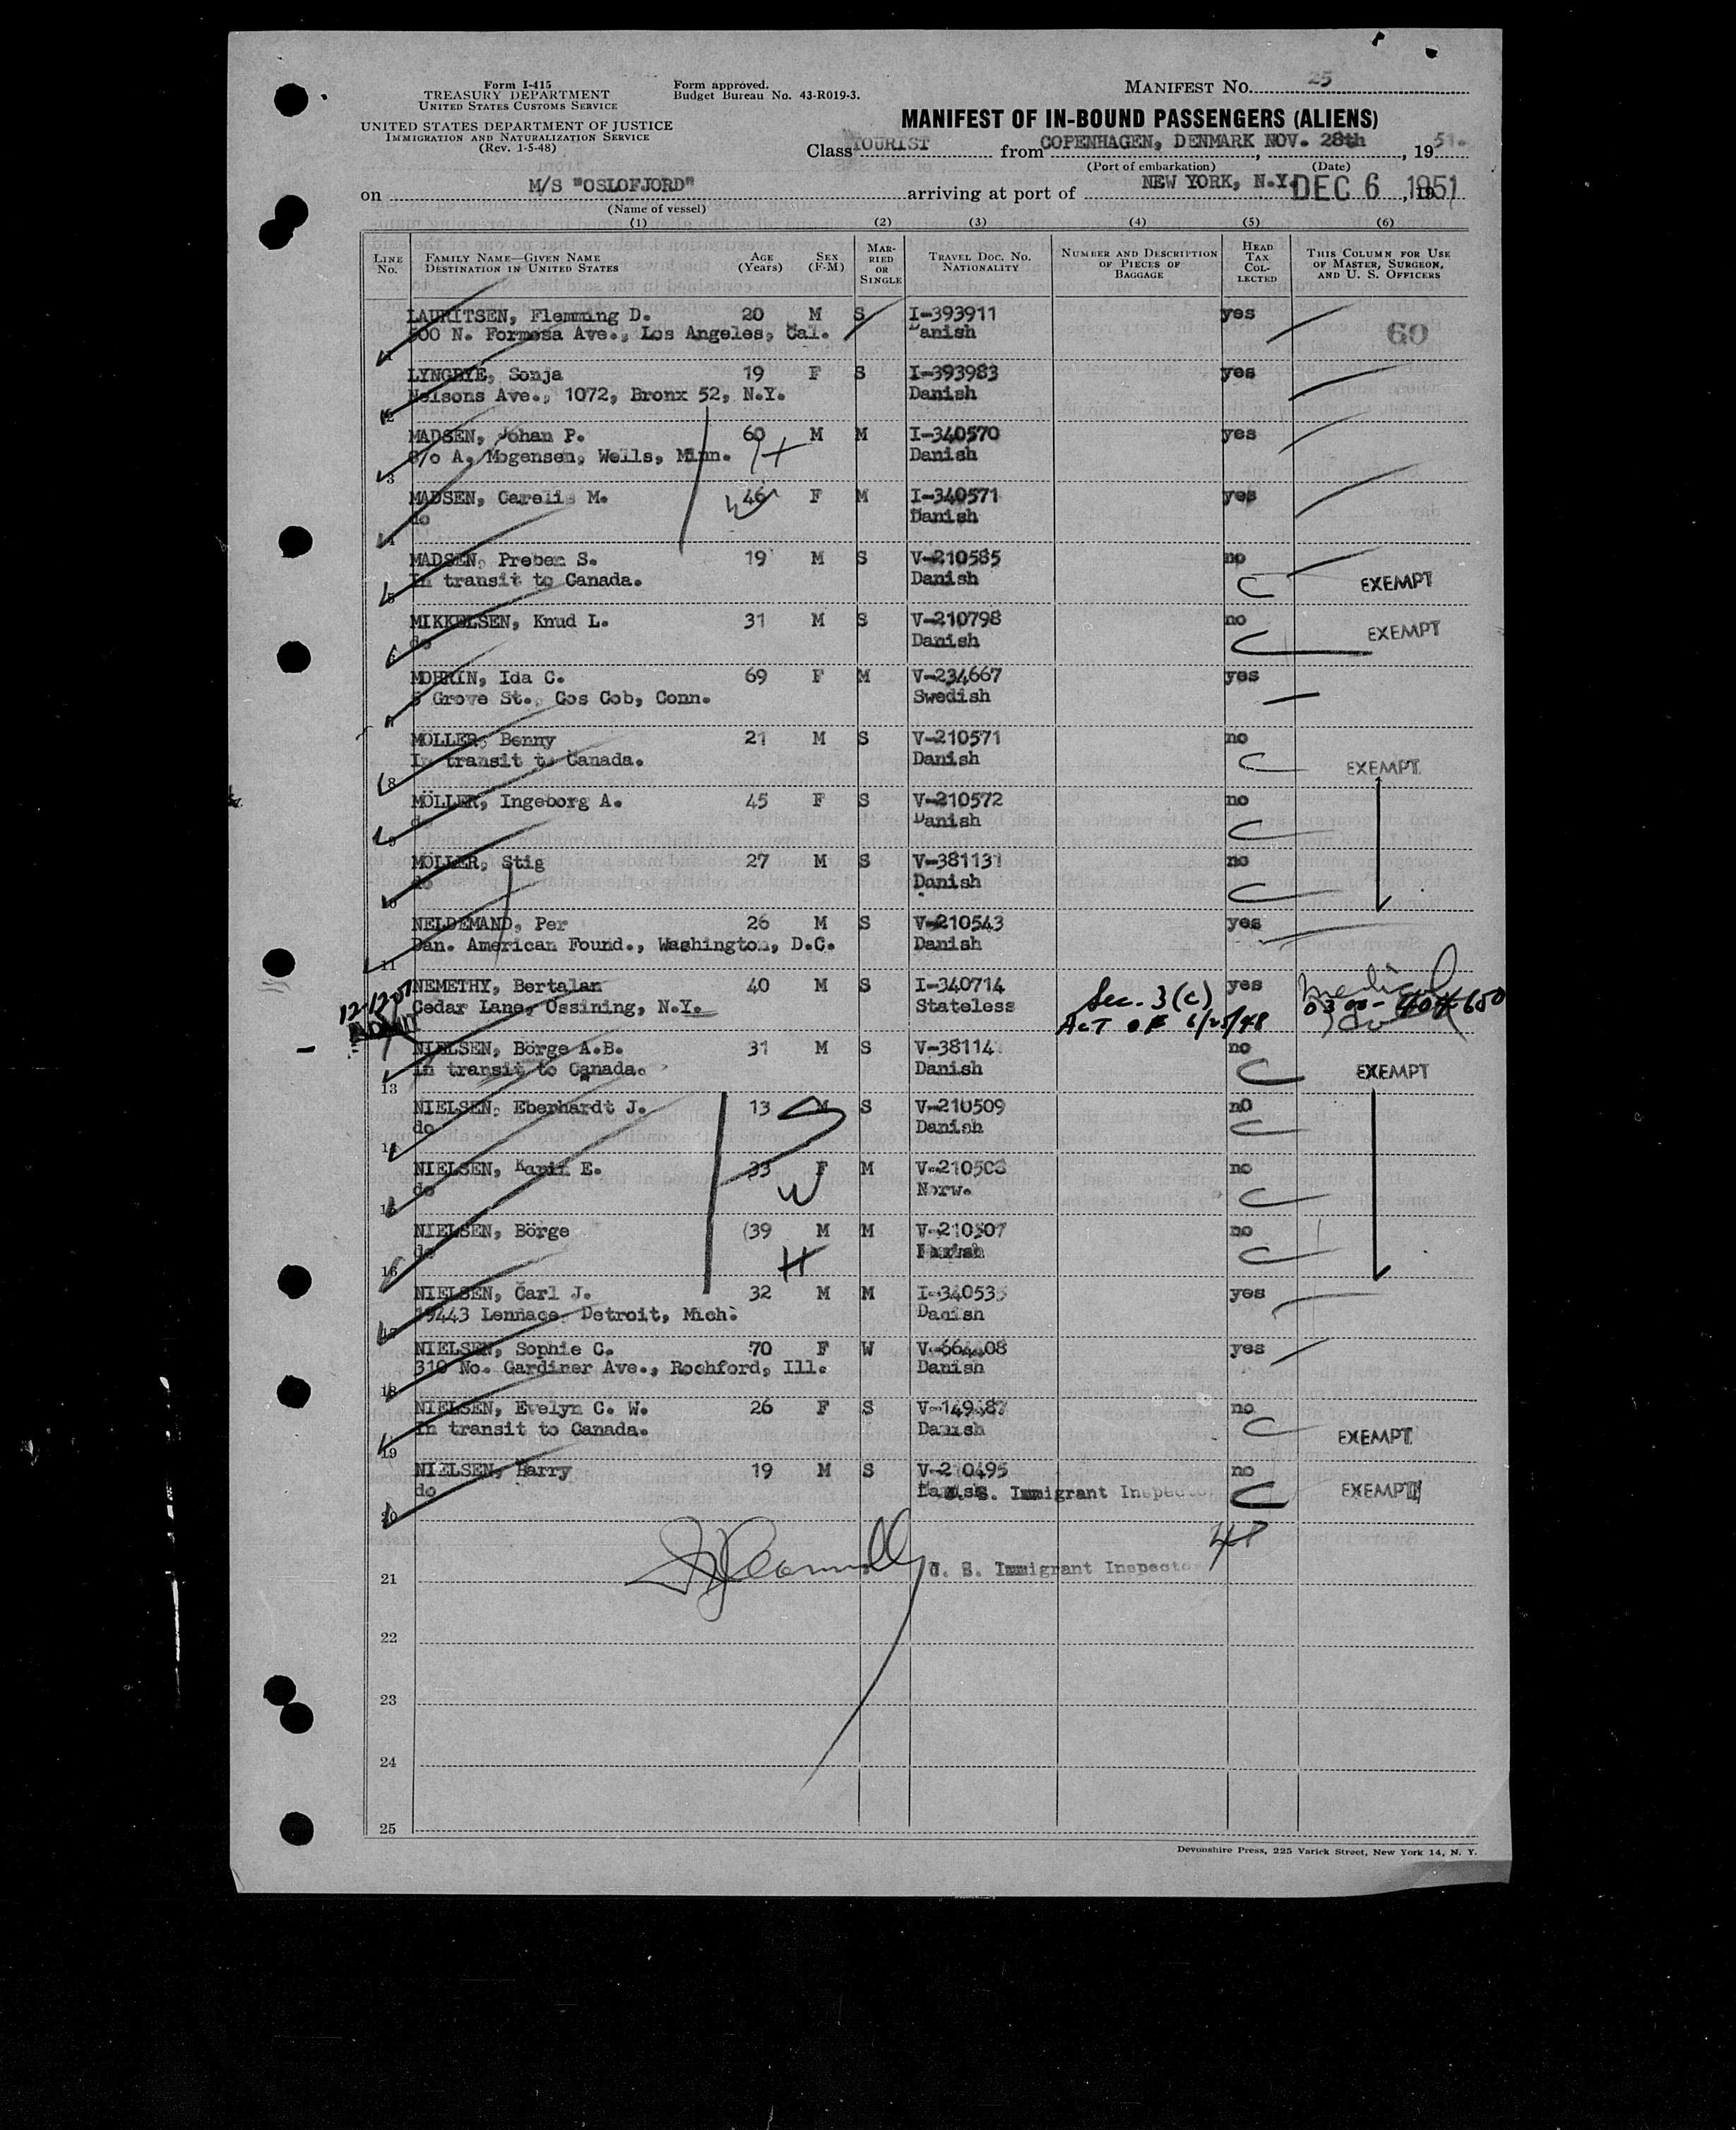 Form I-415
TREASURY DEPARTMENT
UNITED STATES CUSTOMS SERVICE
UNITED STATES DEPARTMENT OF JUSTICE
IMMIGRATION AND NATURALIZATION SERVICE
(Rev. 1-5-48)
Form approved.
Budget Bureau No. 43-R019-3.
MANIFEST NO. 25
MANIFEST OF IN-BOUND PASSENGERS (ALIENS)
Class TOURIST from COPENHAGEN, DENMARK NOV. 28th, 1951.
(Port of embarkation) (Date)
on M/S "OSLOFJORD" arriving at port of NEW YORK, N.Y. DEC 6 1951
(Name of vessel)
(1) (2) (3) (4) (5) (6)
LINE NO. FAMILY NAME—GIVEN NAME DESTINATION IN UNITED STATES AGE (Years) SEX (F-M) MARRIED OR SINGLE TRAVEL DOC. NO. NATIONALITY NUMBER AND DESCRIPTION OF PIECES OF BAGGAGE HEAD TAX COLLECTED THIS COLUMN FOR USE OF MASTER, SURGEON, AND U. S. OFFICERS
LAURITSEN, Flemming D. 20 M S I-393911 yes
1 500 N. Formosa Ave., Los Angeles, Cal. Danish 60
LYNGBYE, Sonja 19 F S I-393983 yes
2 Nelsons Ave., 1072, Bronx 52, N.Y. Danish
MADSEN, Johan P. 60 M M I-340570 yes
3 C/o A. Mogensen, Wells, Minn. H Danish
MADSEN, Carelis M. 46 F M I-340571 yes
4 do W Danish
MADSEN, Preben S. 19 M S V-210585 no
5 In transit to Canada. Danish C EXEMPT
MIKKELSEN, Knud L. 31 M S V-210798 no
6 do Danish C EXEMPT
MOHRIN, Ida C. 69 F M V-234667 yes
7 5 Grove St., Cos Cob, Conn. Swedish
MÖLLER, Benny 21 M S V-210571 no
8 In transit to Canada. Danish C EXEMPT
MÖLLER, Ingeborg A. 45 F S V-210572 no
9 do Danish C
MÖLLER, Stig 27 M S V-381131 no
10 do Danish C
NELDEMAND, Per 26 M S V-210543 yes
11 Dan. American Found., Washington, D.C. Danish
NEMETHY, Bertalan 40 M S I-340714 yes Medical
Cedar Lane, Ossining, N.Y. Stateless Sec. 3(c)
ADMIT ACT OF 6/25/48
NIELSEN, Börge A.B. 31 M S V-38114 no
13 In transit to Canada. Danish C EXEMPT
NIELSEN, Eberhardt J. 13 M S V-210509 no
14 do Danish C
NIELSEN, Karin E. 33 F M V-210508 no
15 do W Norw. C
NIELSEN, Börge 39 M M V-210507 no
16 do H Danish C
NIELSEN, Carl J. 32 M M I-340535 yes
17 19443 Lennace, Detroit, Mich. Danish
NIELSEN, Sophie C. 70 F W yes
18 310 No. Gardiner Ave., Rochford, Ill. Danish
NIELSEN, Evelyn C. W. 26 F S V-149487 no
19 In transit to Canada. Danish C EXEMPT
NIELSEN, Harry 19 M S V-210495 no
20 do Danish U. S. Immigrant Inspector C EXEMPT
21 U. S. Immigrant Inspector
22
23
24
25
Devonshire Press, 225 Varick Street, New York 14, N. Y.